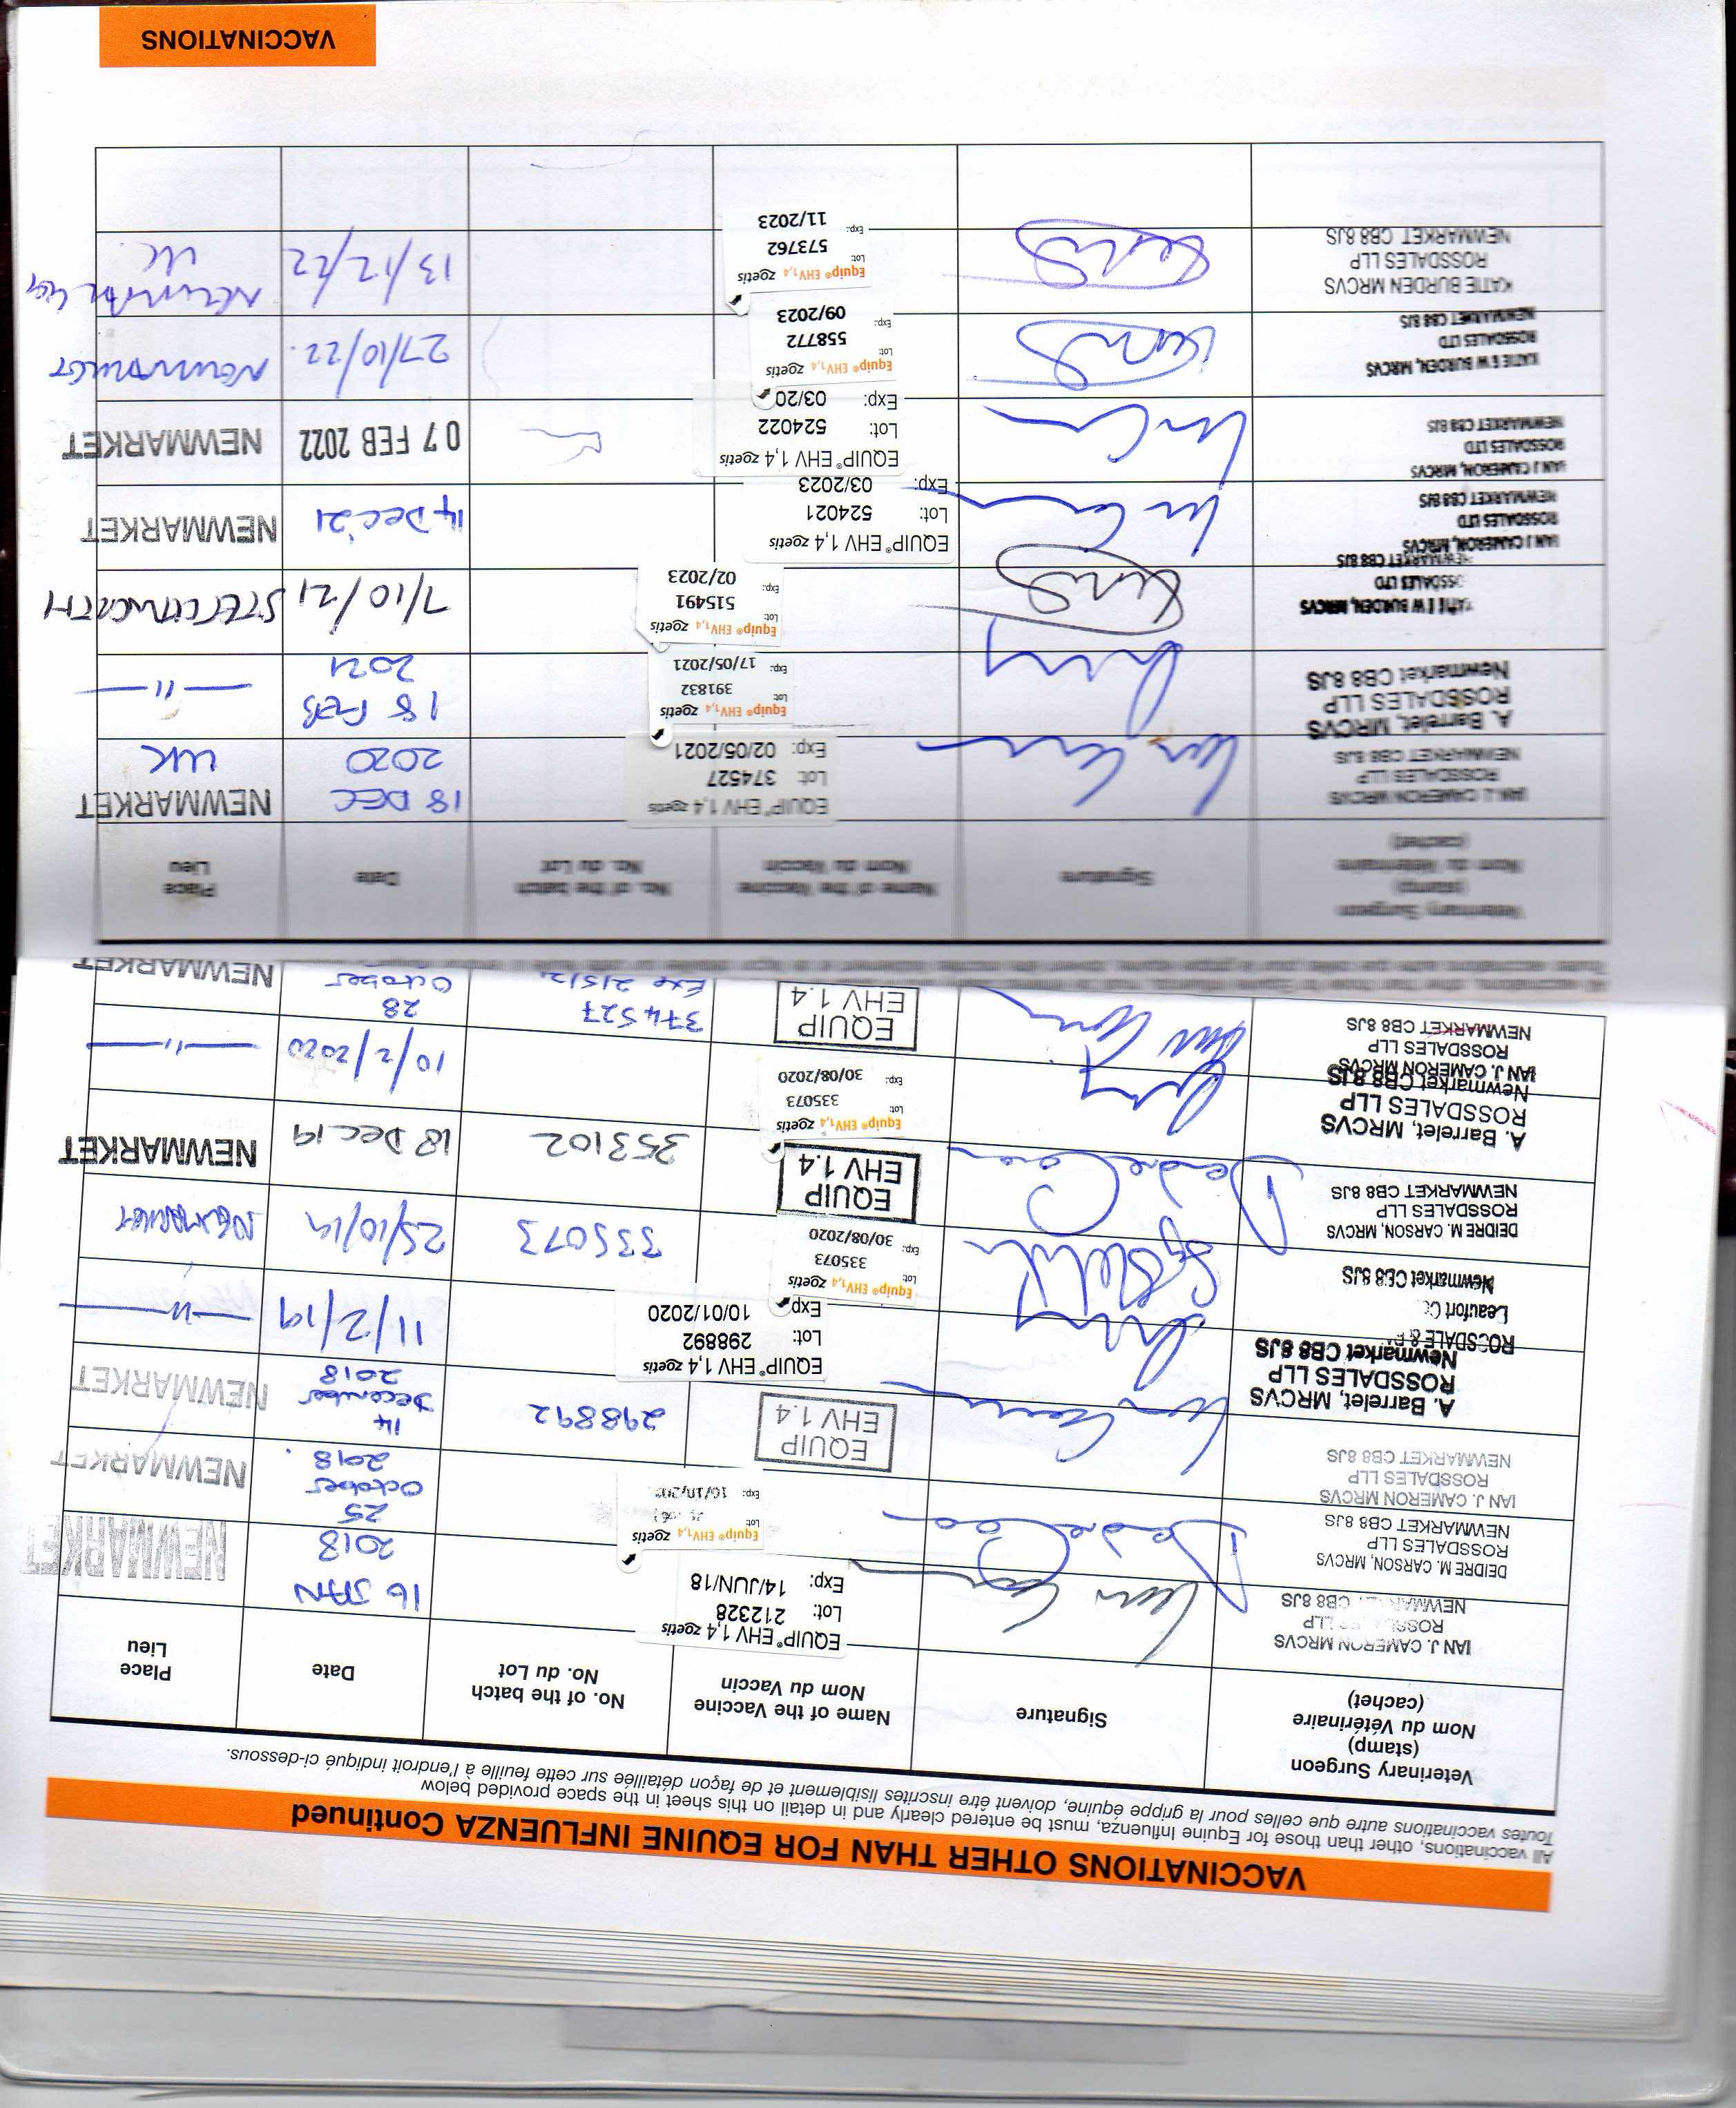 VACCINATIONS OTHER THAN FOR EQUINE INFLUENZA Continued
All vaccinations, other than those for Equine Influenza, must be entered clearly and in detail on this sheet in the space provided below
Toutes vaccinations autres que celles pour la grippe équine, doivent être inscrites lisiblement et de façon détaillée sur cette feuille a l'endroit indiqué ci-dessous.
Place
Lieu
Date
No. of the batch
No. du Lot
Name of the Vaccine
Nom du Vaccin
Signature
Veterinary Surgeon
(stamp)
Nom du Vétérinaire
(cachet)
NEWMARKET
16 JAN
2018
EQUIP® EHV 1,4 zoetis
Lot: 212328
Exp: 14/JUN/18
IAN J. CAMERON MRCVS
ROSSDALES LLP
NEWMARKET CB8 8JS
NEWMARKET
25
October
2018.
Equip® EHV1,4 zoetis
Lot:
Exp:
DEIDRE M. CARSON, MRCVS
ROSSDALES LLP
NEWMARKET CB8 8JS
NEWMARKET
14
December
2018
298892
EQUIP
EHV 1.4
IAN J. CAMERON MRCVS
ROSSDALES LLP
NEWMARKET CB8 8JS
—"—
11/2/19
EQUIP® EHV 1,4 zoetis
Lot: 298892
Exp: 10/01/2020
A. Barrelet, MRCVS
ROSSDALES LLP
Newmarket CB8 8JS
NEWMARKET
25/10/19
335073
Equip® EHV1,4 zoetis
Lot: 335073
Exp: 30/08/2020
Newmarket CB8 8JS
NEWMARKET
18 Dec 19
353102
EQUIP
EHV 1.4
DEIDRE M. CARSON, MRCVS
ROSSDALES LLP
NEWMARKET CB8 8JS
—"—
10/2/2020
Equip® EHV1,4 zoetis
Lot: 335073
Exp: 30/08/2020
A. Barrelet, MRCVS
ROSSDALES LLP
Newmarket CB8 8JS
NEWMARKET
28
October
374527
Exp 2/5/21
EQUIP
EHV 1.4
IAN J. CAMERON MRCVS
ROSSDALES LLP
NEWMARKET CB8 8JS
Place
Lieu
Date
No. of the batch
No. du Lot
Name of the Vaccine
Nom du Vaccin
Signature
Veterinary Surgeon
(stamp)
Nom du Vétérinaire
(cachet)
NEWMARKET
UK
18 DEC
2020
EQUIP® EHV 1,4 zoetis
Lot: 374527
Exp: 02/05/2021
IAN J. CAMERON MRCVS
ROSSDALES LLP
NEWMARKET CB8 8JS
—"—
18 FEB
2021
Equip® EHV1,4 zoetis
Lot: 391832
Exp: 17/05/2021
A. Barrelet, MRCVS
ROSSDALES LLP
Newmarket CB8 8JS
STETCHWORTH
7/10/21
Equip® EHV1,4 zoetis
Lot: 515491
Exp: 02/2023
KATIE E W BURDEN, MRCVS
ROSSDALES LTD
NEWMARKET CB8 8JS
NEWMARKET
14 Dec '21
EQUIP® EHV 1,4 zoetis
Lot: 524021
Exp: 03/2023
IAN J CAMERON, MRCVS
ROSSDALES LTD
NEWMARKET CB8 8JS
NEWMARKET
07 FEB 2022
EQUIP® EHV 1,4 zoetis
Lot: 524022
Exp: 03/20
IAN J CAMERON, MRCVS
ROSSDALES LTD
NEWMARKET CB8 8JS
NEWMARKET
27/10/22.
Equip® EHV1,4 zoetis
Lot: 558772
Exp: 09/2023
KATIE E W BURDEN, MRCVS
ROSSDALES LTD
NEWMARKET CB8 8JS
NEWMARKET
UK
13/12/22
Equip® EHV1,4 zoetis
Lot: 573762
Exp: 11/2023
KATIE BURDEN MRCVS
ROSSDALES LLP
NEWMARKET CB8 8JS
VACCINATIONS